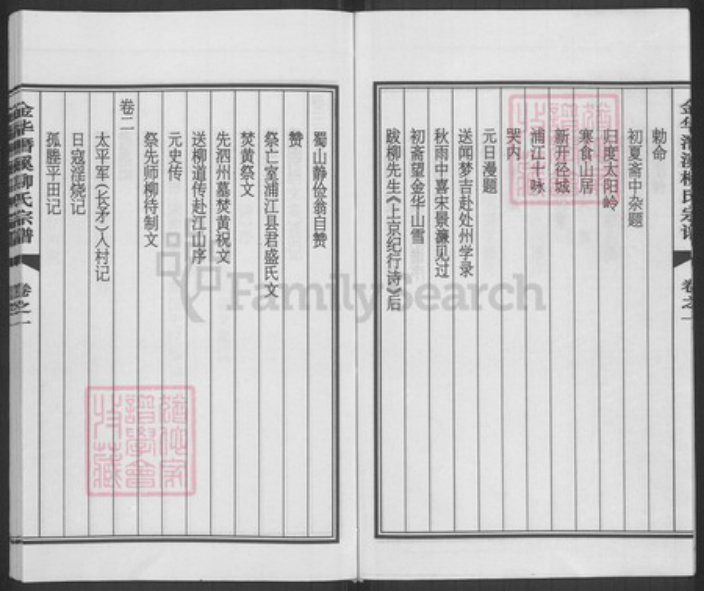 勅命
初夏斋中杂题
归度太阳岭
寒食山居
新开径城
浦江十咏
哭内
元日漫题
送闻梦吉赴处州学录
秋雨中喜宋景濂见过
初斋望金华山雪
跋柳先生《上京纪行诗》后
蜀山静俭翁自赞
赞
祭亡室浦江县君盛氏文
焚黄祭文
先泗州墓焚黄祝文
送柳道传赴江山序
元史传
祭先师柳待制文
卷二
太平军(长矛)入村记
日寇淫烧记
孤塍平田记
卷之一
卷之一
FamilySearch